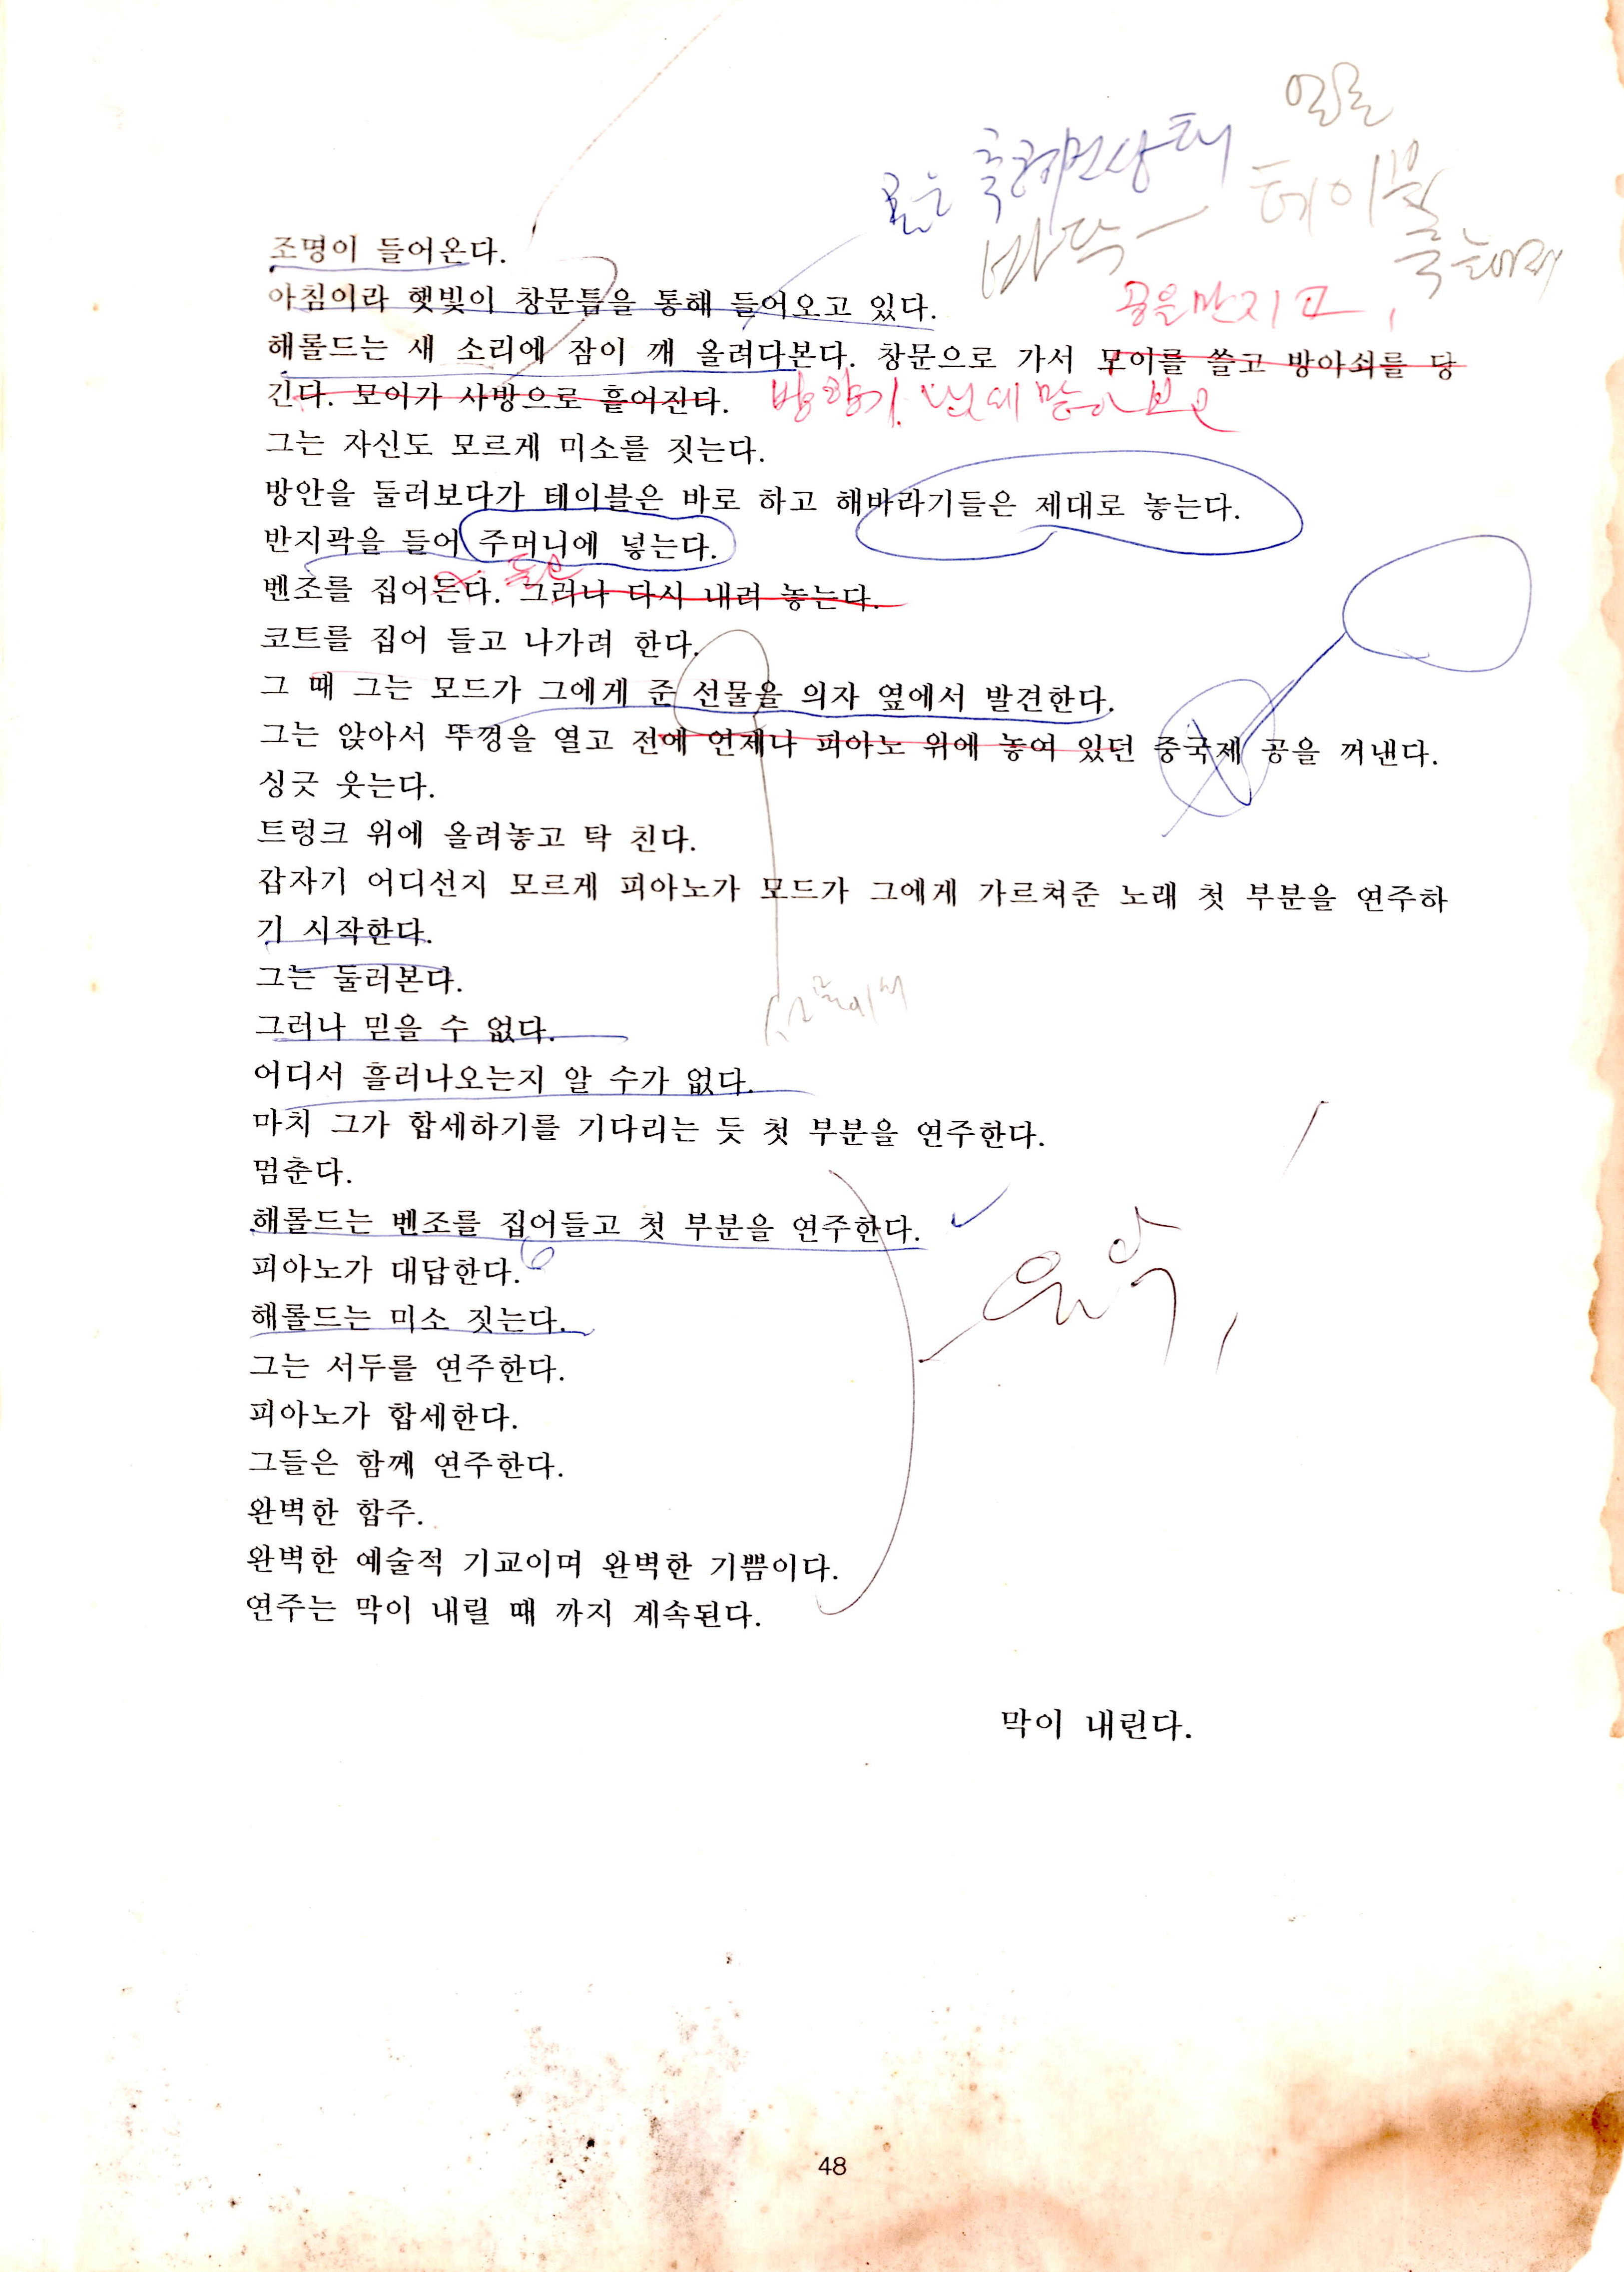 일로
테이블
바닥
공을 만지고,
조명이 들어온다.
아침이라 햇빛이 창문틈을 통해 들어오고 있다.
해롤드는 새 소리에 잠이 깨 올려다본다. 창문으로 가서 모이를 쓸고 방아쇠를 당
긴다. 모이가 사방으로 흩어진다.
그는 자신도 모르게 미소를 짓는다.
방안을 둘러보다가 테이블은 바로 하고 해바라기들은 제대로 놓는다.
반지곽을 들어 주머니에 넣는다.
들고
벤조를 집어든다. 그러나 다시 내려 놓는다.
코트를 집어 들고 나가려 한다.
그 때 그는 모드가 그에게 준 선물을 의자 옆에서 발견한다.
그는 앉아서 뚜껑을 열고 전에 언제나 피아노 위에 놓여 있던 중국제 공을 꺼낸다.
싱긋 웃는다.
트렁크 위에 올려놓고 탁 친다.
갑자기 어디선지 모르게 피아노가 모드가 그에게 가르쳐준 노래 첫 부분을 연주하
기 시작한다.
그는 둘러본다.
그러나 믿을 수 없다.
어디서 흘러나오는지 알 수가 없다.
마치 그가 합세하기를 기다리는 듯 첫 부분을 연주한다.
멈춘다.
해롤드는 벤조를 집어들고 첫 부분을 연주한다.
피아노가 대답한다.
음악
해롤드는 미소 짓는다.
그는 서두를 연주한다.
피아노가 합세한다.
그들은 함께 연주한다.
완벽한 합주.
완벽한 예술적 기교이며 완벽한 기쁨이다.
연주는 막이 내릴 때 까지 계속된다.
막이 내린다.
48